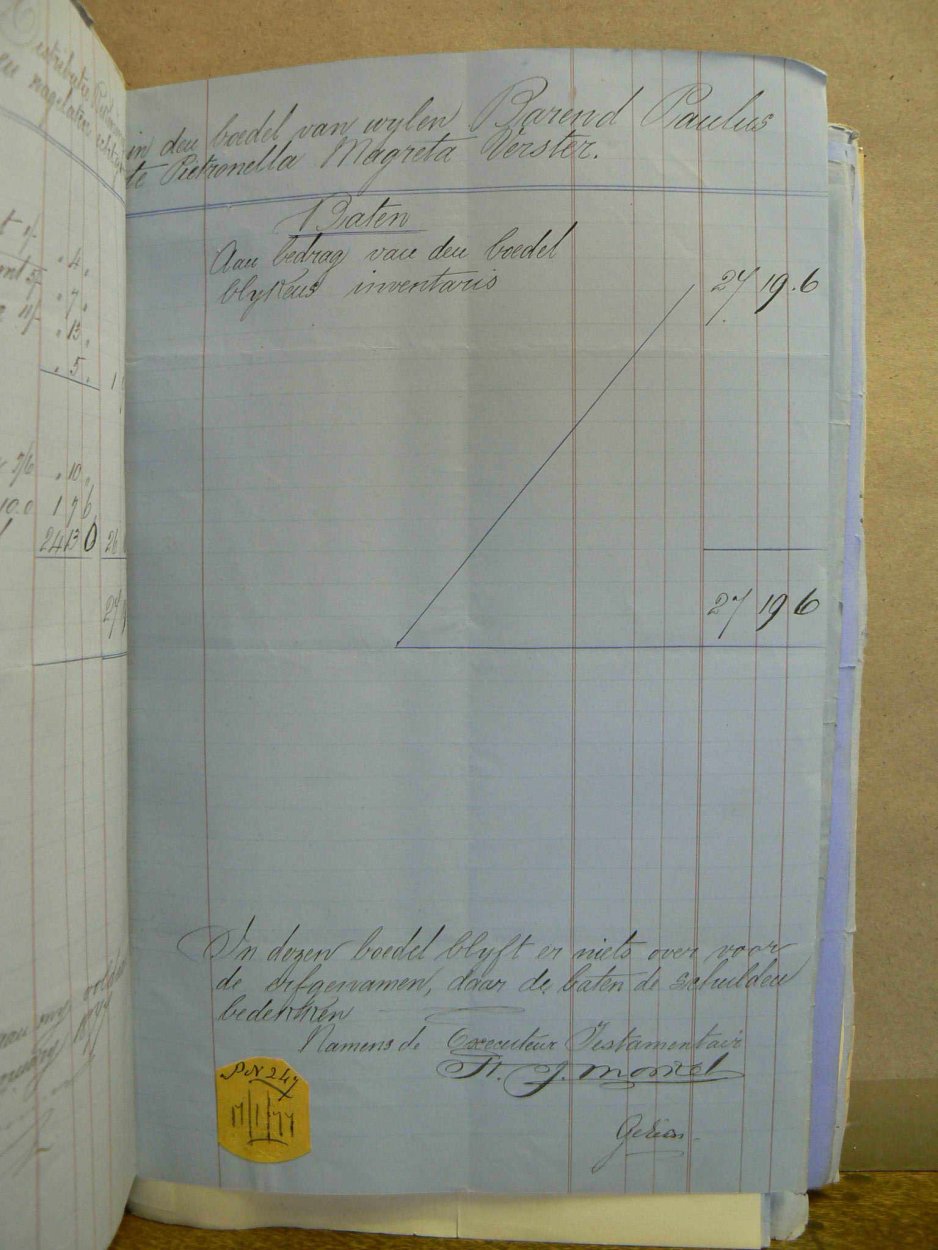 in den boedel van wylen Barend Paulus
te Pietronella Magreta Verster.
Baten
Aan bedrag van den boedel
blykens inventaris 27 19.6
27 19 6
In dezen boedel blyft er niets over voor
de erfgenamen, daar de baten de schulden
bedekken
Namens de Executeur Testamentair
PN 247
4.
7.
13.
5.
10.
1 7 6
24 13 0 26
27